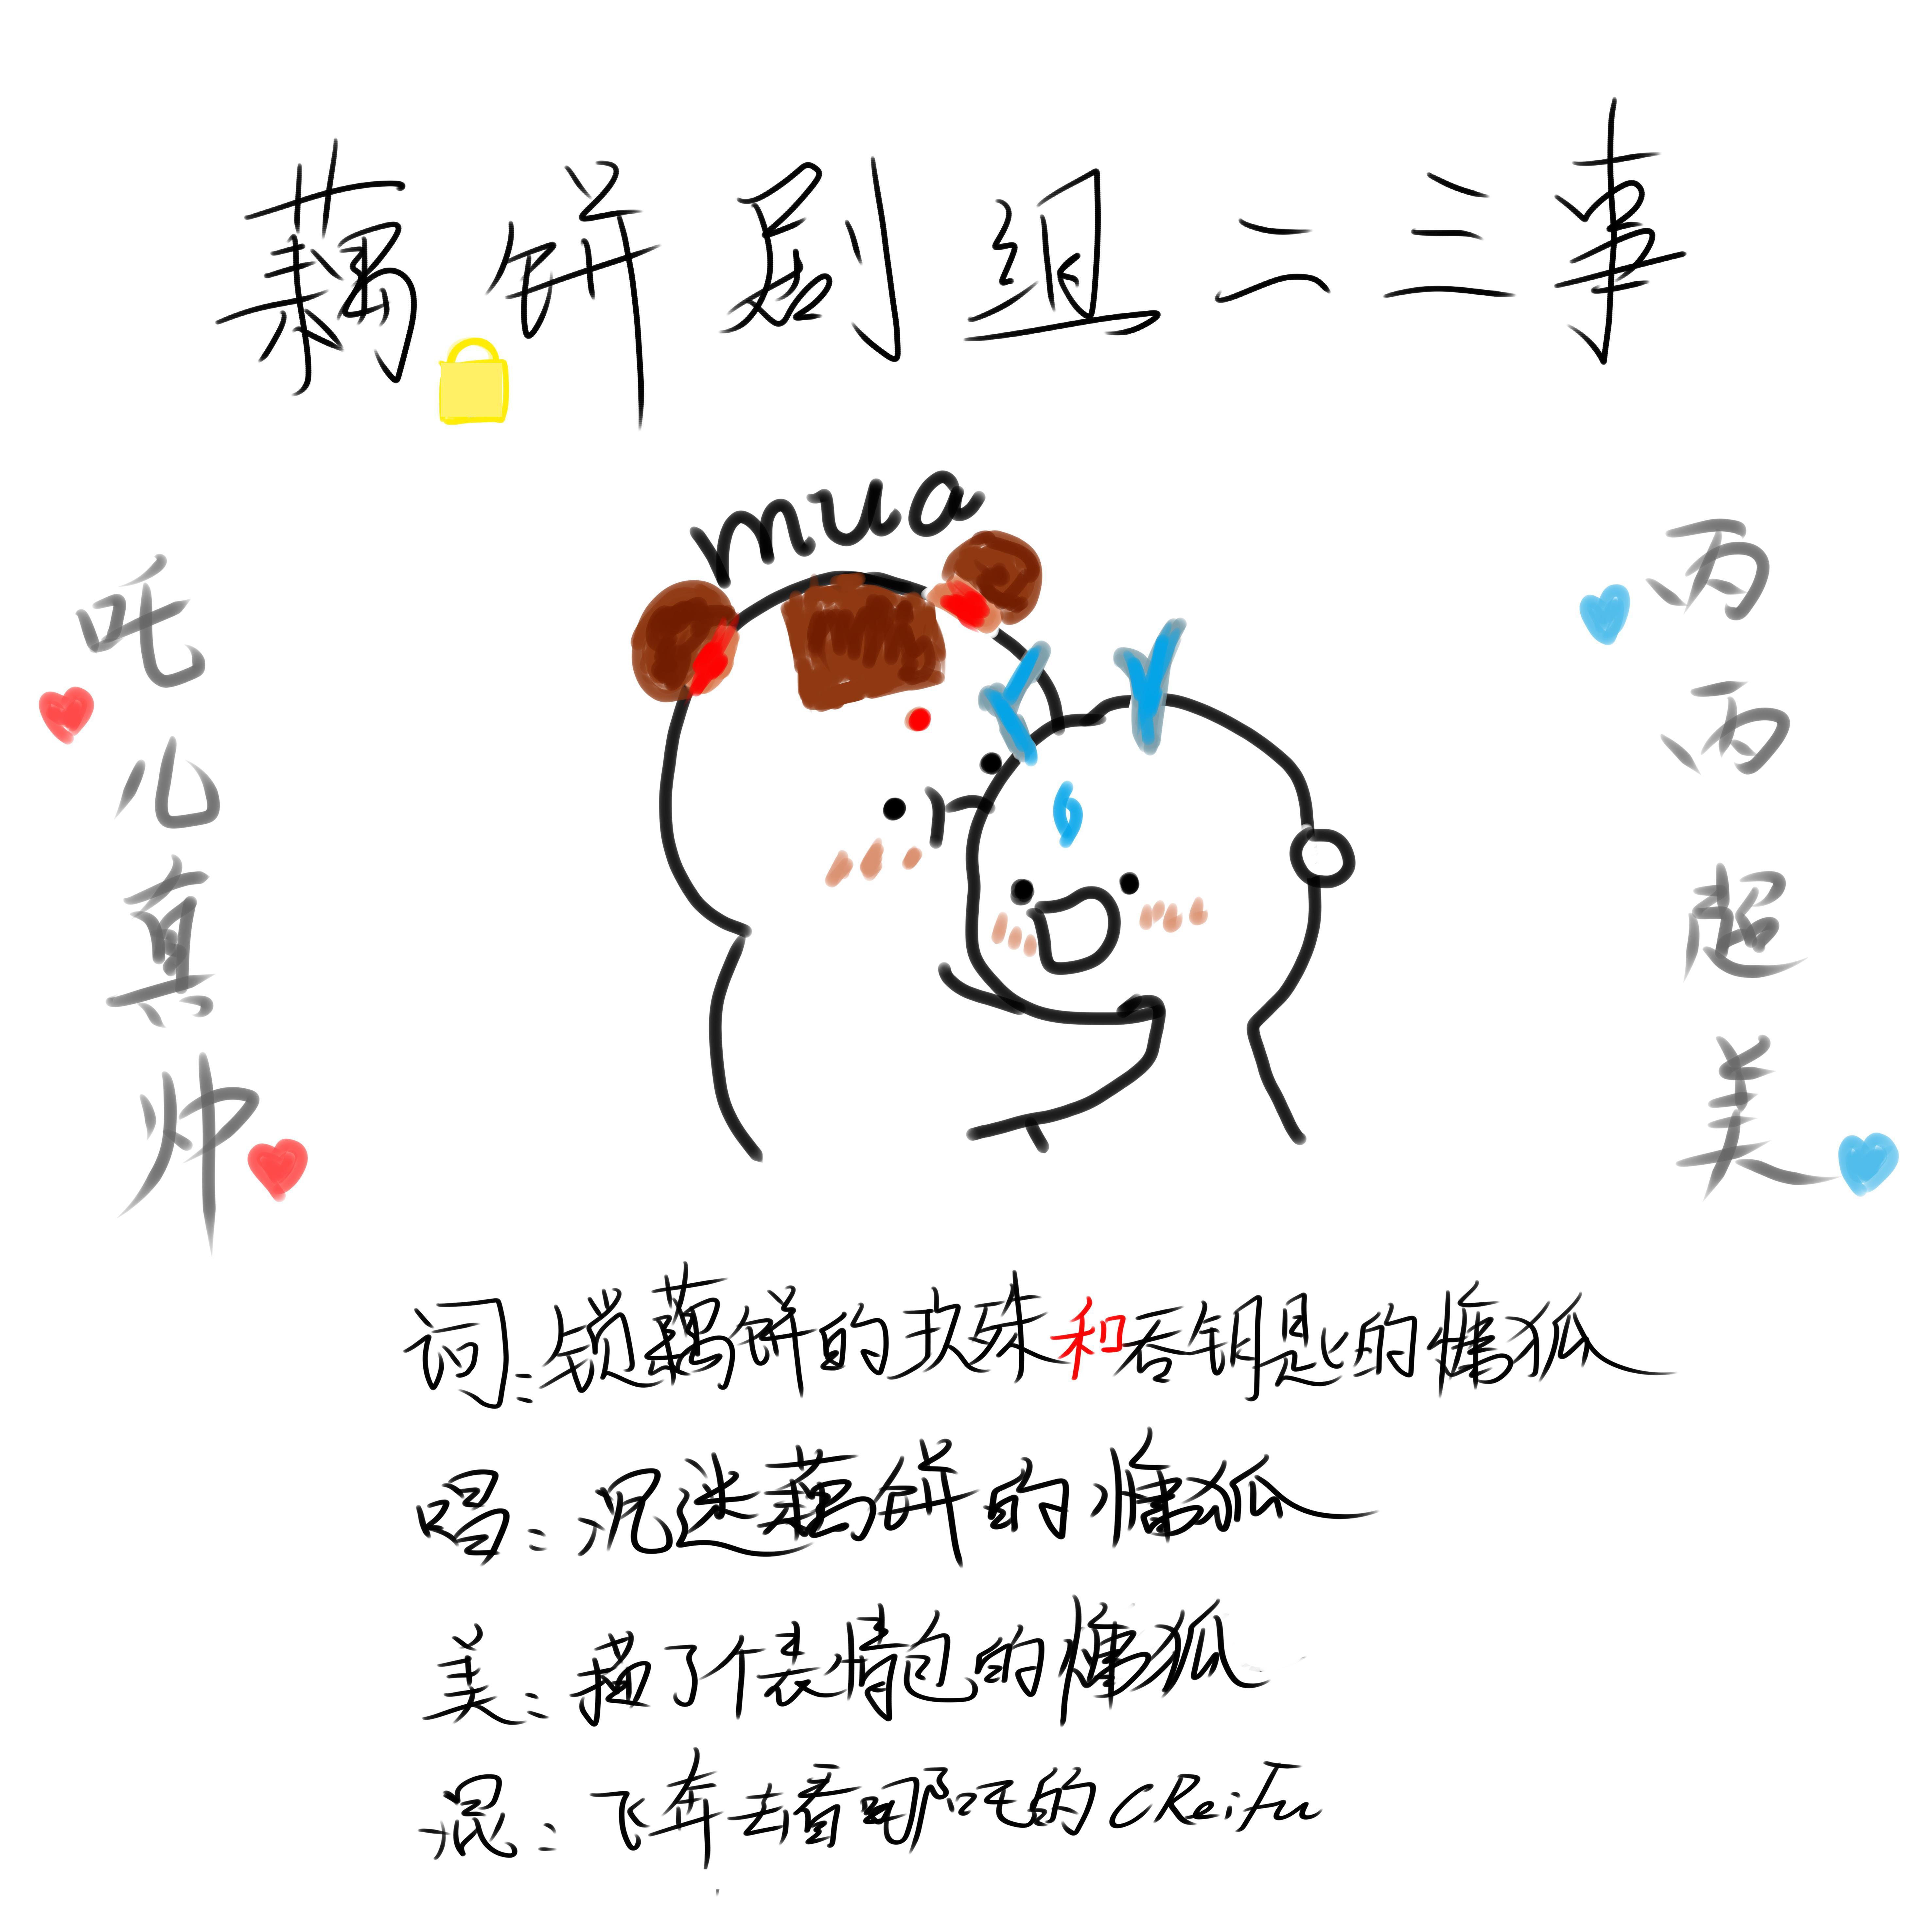 藕饼剧组一二事
mua
吒儿真帅
丙丙超美
词：锁藕饼的玖殊和否钶思的懂狐
唱：沉迷藕饼的懂狐
美：搞了个表情包的懂狐
混：飞车去看哪吒的CReiFu